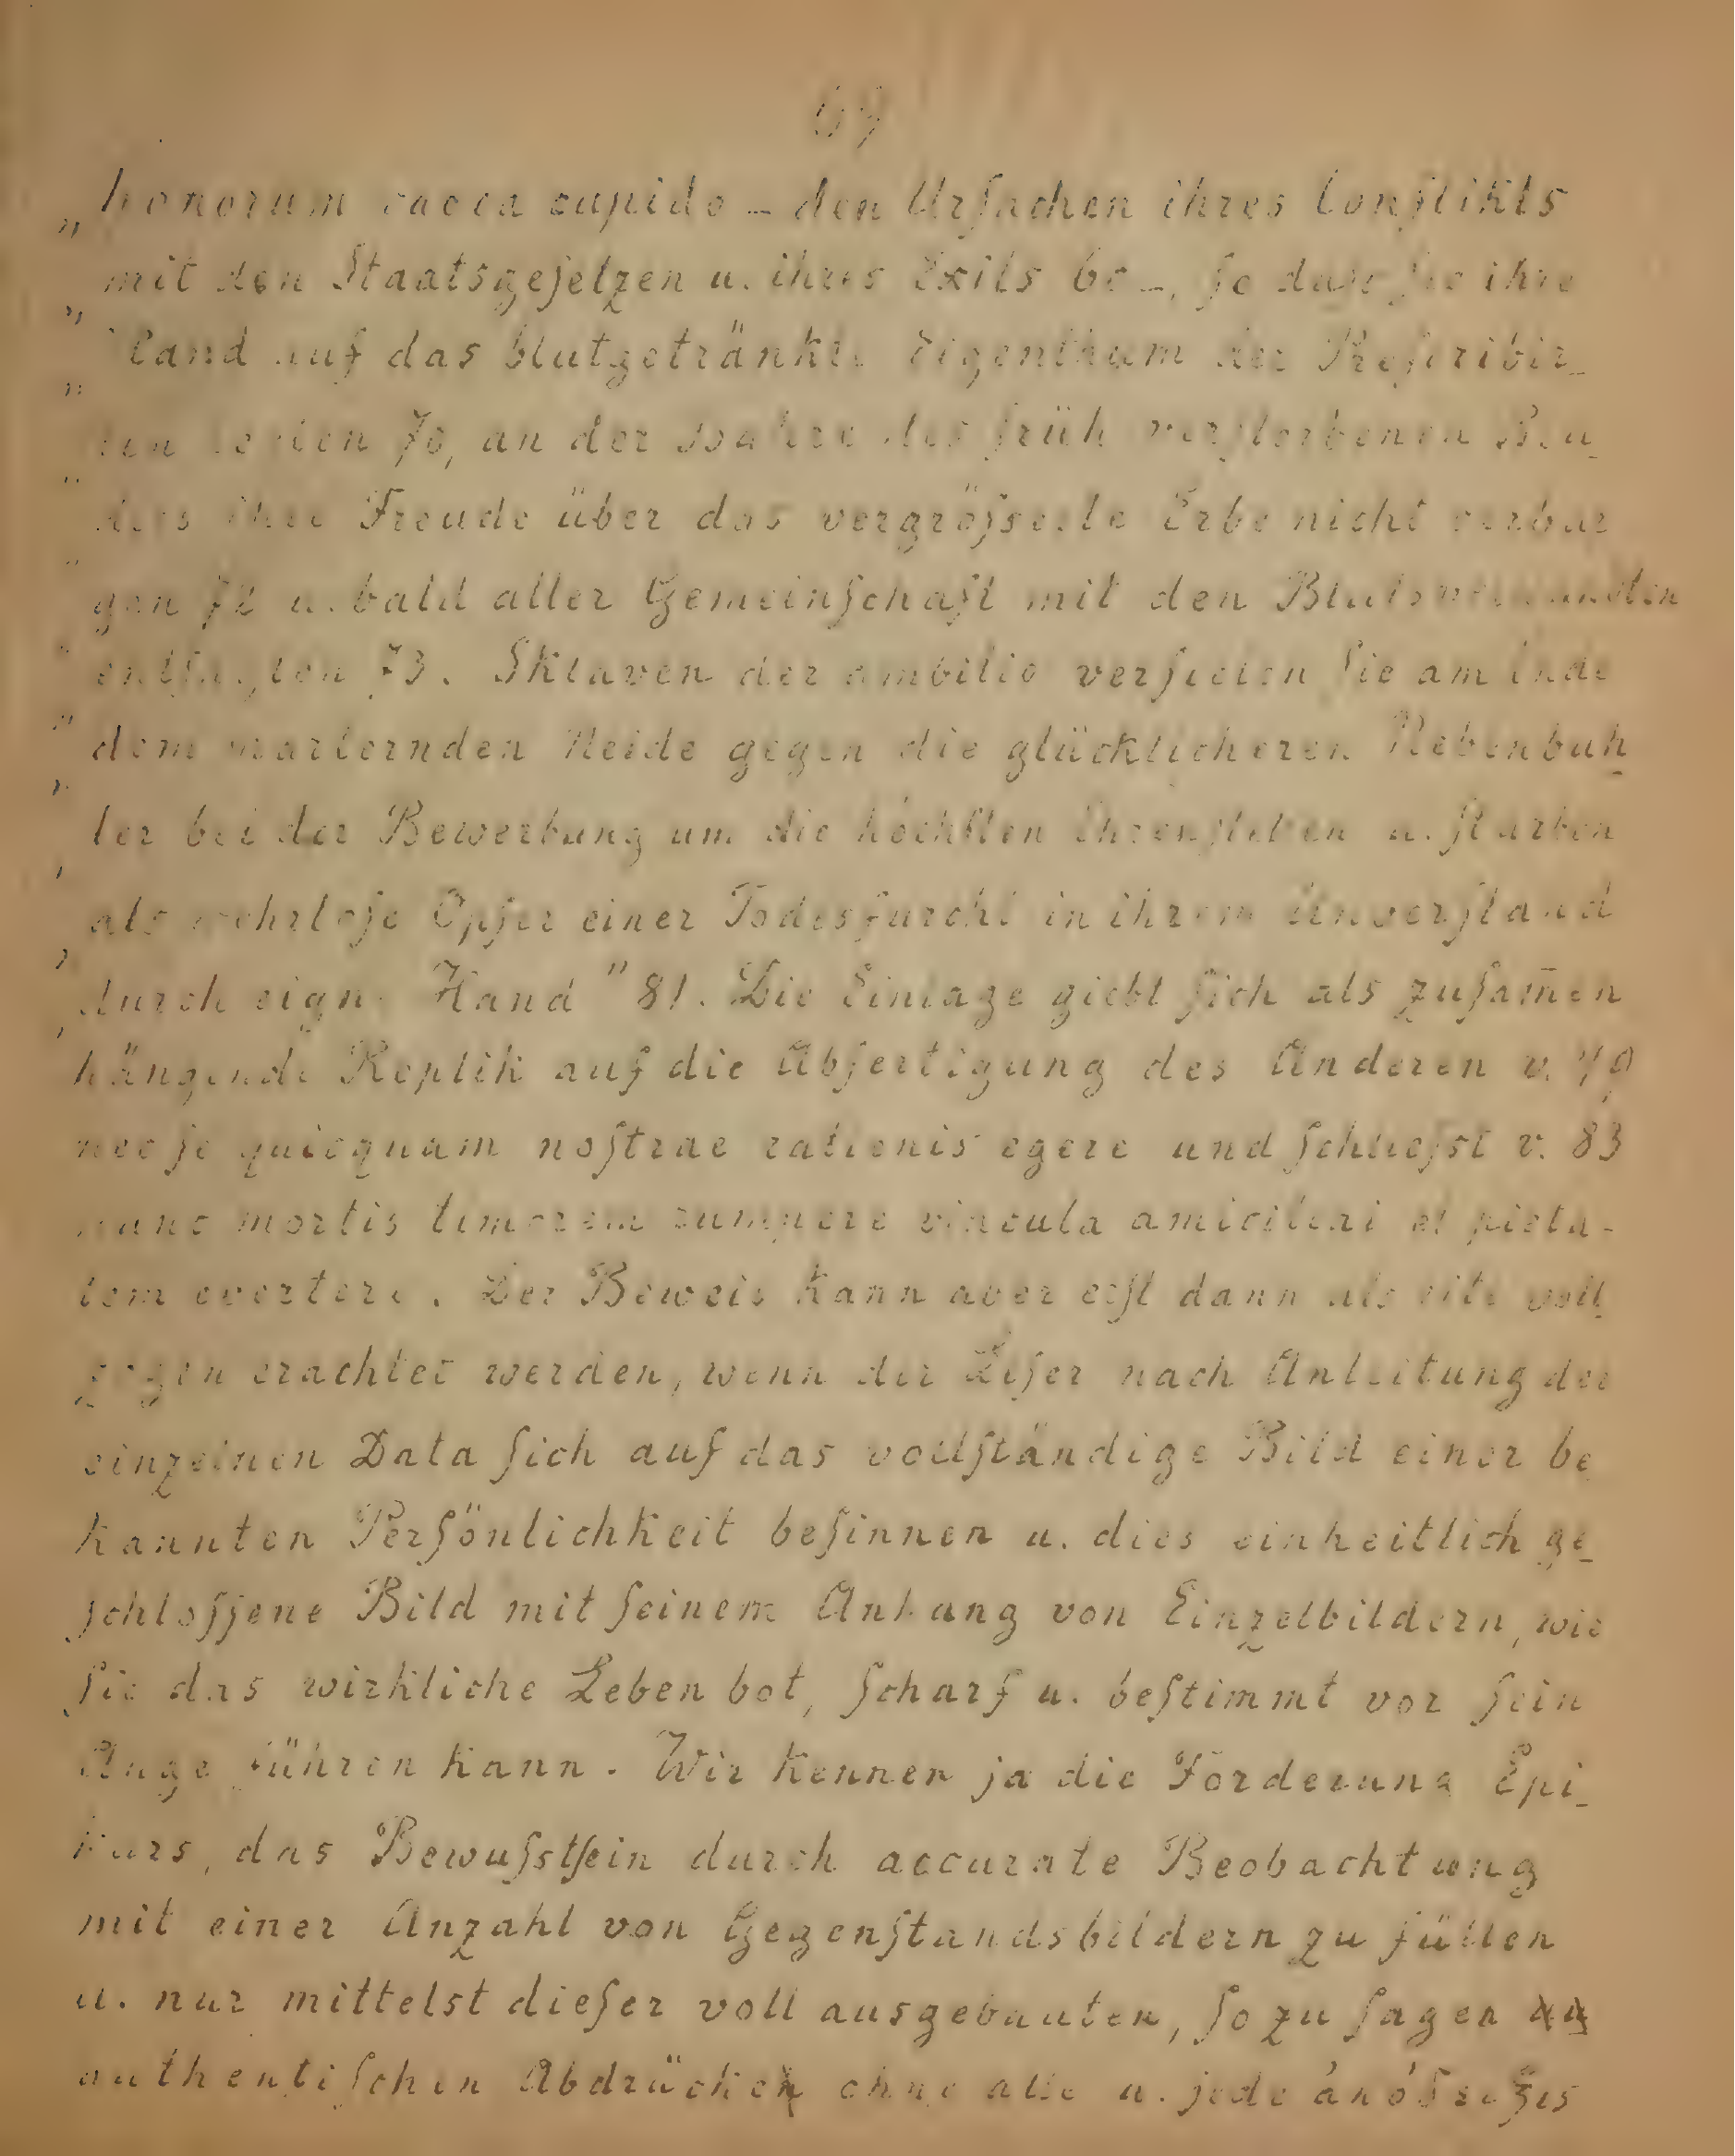 69
„ honorum caeca cupido – den Urſachen ihres Conflikts
„ mit den Staatsgeſetzen u. ihres Exils bo –, ſo dass ſie ihre
„ Hand auf das blutgetränkte Eigenthum der Proſcribir_
„ ten 70, an der Bahre des früh verſtorbenen Bru_
„ ders ihre Freude über das vergröſserte Erbe nicht verbar
„ gen 72 u. bald aller Gemeinſchaft mit den Blutsverwandten
„ entſagten 73. Sklaven der ambitio verfielen ſie am Ende
„ dem marternden Neide gegen die glücklicheren Nebenbuh_
, ler bei der Bewerbung um die höchſten Ehrenſtellen u. ſtarben
, als wehrloſe Opfer einer Todesfurcht in ihrem Unverſtand
, durch eigne Hand" 81. Die Einlage giebt ſich als zuſam̄en
hängende Replik auf die Abfertigung des Anderen v.
nec ſe quicquam noſtrae rationis egere und ſchlieſst v. 83
hunc mortis timorem rumpere vincula amicitiai et pieta-
tem evertere. Der Beweis kann aber erſt dann als rite voll_
zogen erachtet werden, wenn der Leſer nach Anleitung der
einzelnen Data ſich auf das vollſtändige Bild einer be_
kannten Perſönlichkeit beſinnen u. dies einheitlich ge_
ſchloſſene Bild mit ſeinem Anhang von Einzelbildern, wie
ſie das wirkliche Leben bot, ſcharf u. beſtimmt vor ſein
Auge führen kann. Wir kennen ja die Forderung Epi_
kurs, das Bewuſstſein durch accurate Beobachtung
mit einer Anzahl von Gegenſtandsbildern zu füllen
u. nur mittelst dieſer voll ausgebauten, ſo zu ſagen
authentiſchen Abdrücke ohne alle u. jede